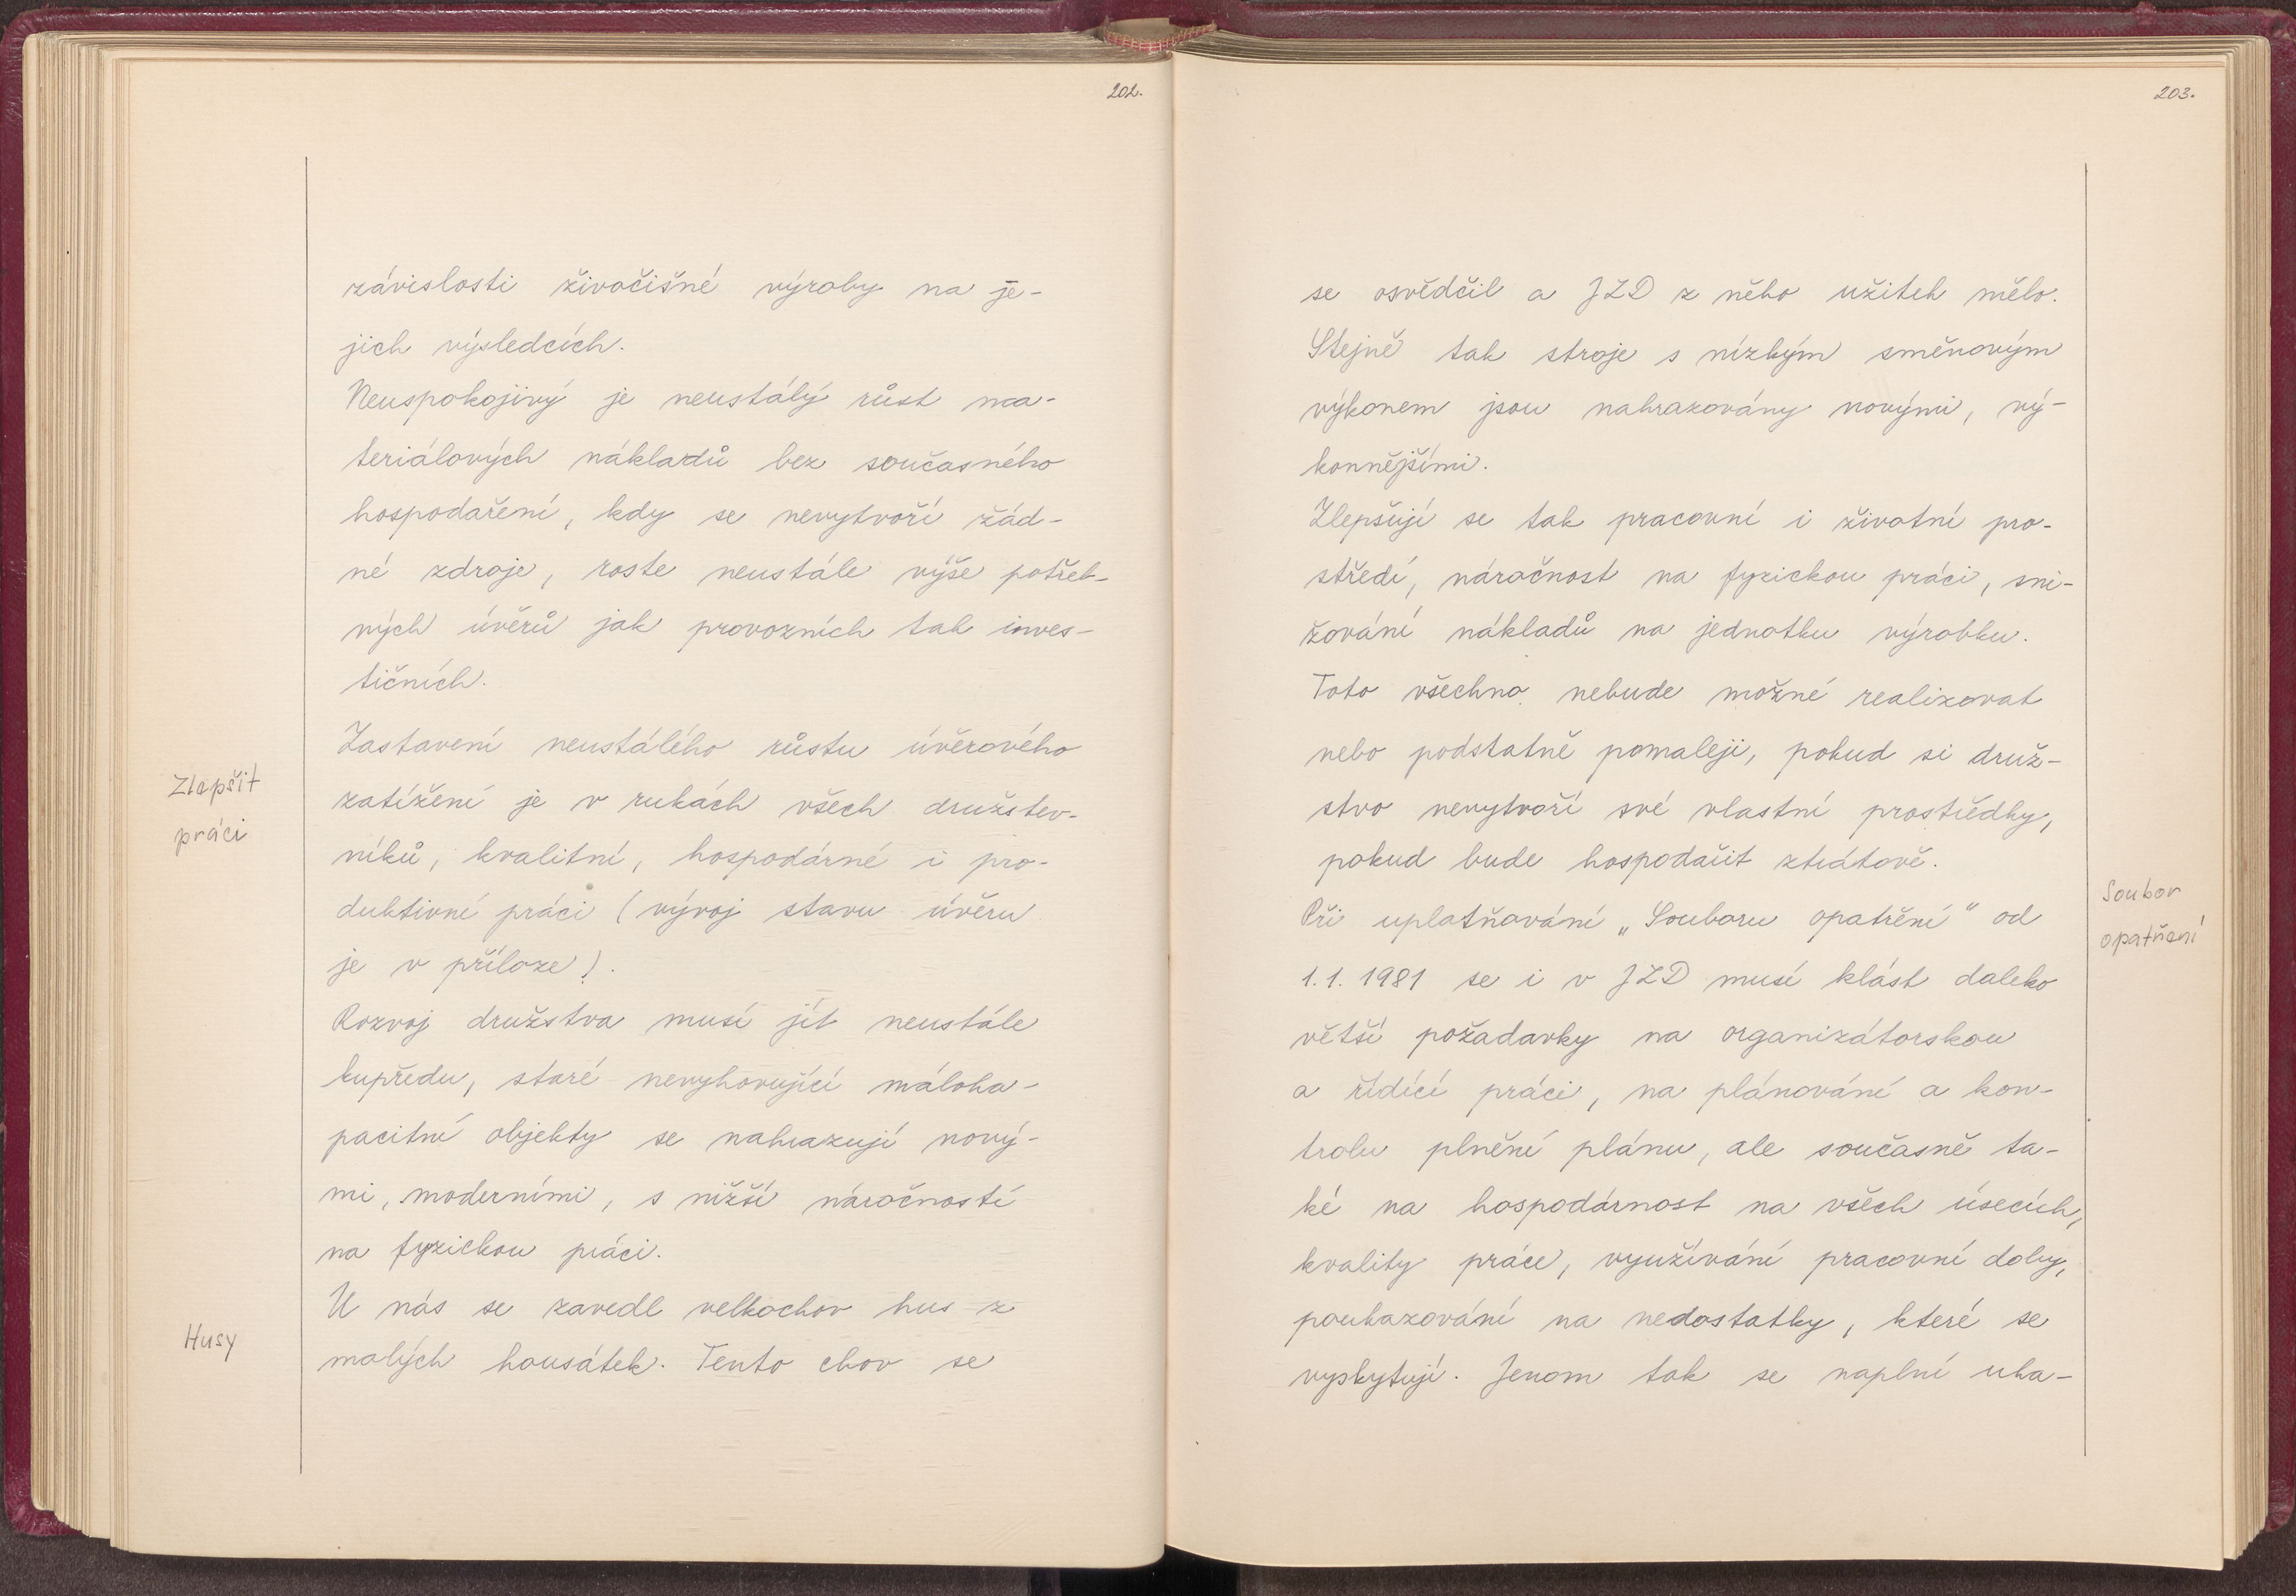 202.
závislosti živočišné výroby na je-
jich výsledcích.
Neuspokojivý je neustálý růst ma-
teriálových nákladů bez současného
hospodaření, kdy se nevytvoří žád-
né zdroje, roste neustále výše potřeb-
ných úvěrů jak provozních tak inves-
tičních.
Zastavení neustálého růstu úvěrového
Zlepšit
práci
zatížení je v rukách všech družstev-
níků, kvalitní, hospodárné i pro-
duktivní práci (vývoj stavu úvěru
je v příloze).
Rozvoj družstva musí jít neustále
kupředu, staré nevyhovující máloka-
pacitní objekty se nahrazují nový-
mi, moderními, s nižší náročností
na fyzickou práci.
U nás se zavedl velkochov hus z
Husy
malých housátek. Tento chov se
203.
se osvědčil a JZD z něho užitek mělo.
Stejně tak stroje s nízkým směnovým
výkonem jsou nahrazovány novými, vý-
konnějšími.
Zlepšují se tak pracovní i životní pro-
středí, náročnost na fyzickou práci, sni-
žování nákladů na jednotku výrobku.
Toto všechno nebude možné realizovat
nebo podstatně pomaleji, pokud si druž-
stvo nevytvoří své vlastní prostředky,
pokud bude hospodařit ztrátově.
Při uplatňování „Souboru opatření" od
Soubor
opatření
1. 1. 1981 se i v JZD musí klást daleko
větší požadavky na organizátorskou
a řídící práci, na plánování a kon-
trolu plnění plánu, ale současně ta-
ké na hospodárnost na všech úsecích,
kvality práce, využívání pracovní doby,
poukazování na nedostatky, které se
vyskytují. Jenom tak se naplní uka-